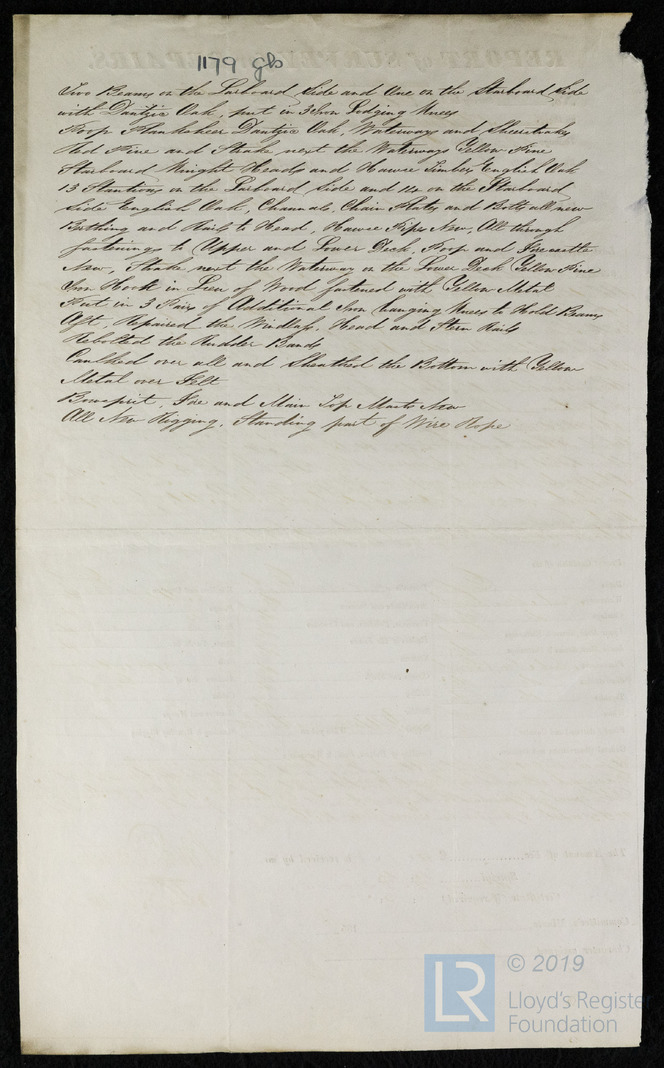 1179 glb
Two Beams on the Larboard Side and One on the Starboard Side
with Dantzic Oak, put in 3 Iron Lodging Knees
Poop Plansheer Dantzic Oak, Waterways and Sheerstrakes
Red Pine and Strake next the Waterways Yellow Pine
Starboard Knight Heads and Hawse Timbers English Oak
13 Stantions on the Larboard Side and on the Starboard
Side English Oak, Channels, Chain Plates and Bolts all new
Berthing and Rails to Head, Hawse Pipes New, All through
fastenings to Upper and Lower Deck, Poop and Forecastle
New, Strake next the Waterway on the Lower Deck Yellow Pine
Iron Hook in Lieu of Wood fastened with Yellow Metal
Put in 3 Pairs of Additional Iron hanging Knees to Hold Beams
Aft, Repaired the Windlass, Head and Stern Rails
Rebolted the Rudder Bands
Caulked over all and Sheathed the Bottom with Yellow
Metal over Felt
Bowsprit, Fore and Main Top Masts New
All New Rigging, Standing part of Wire Rope
LR
© 2019
Lloyd's Register
Foundation